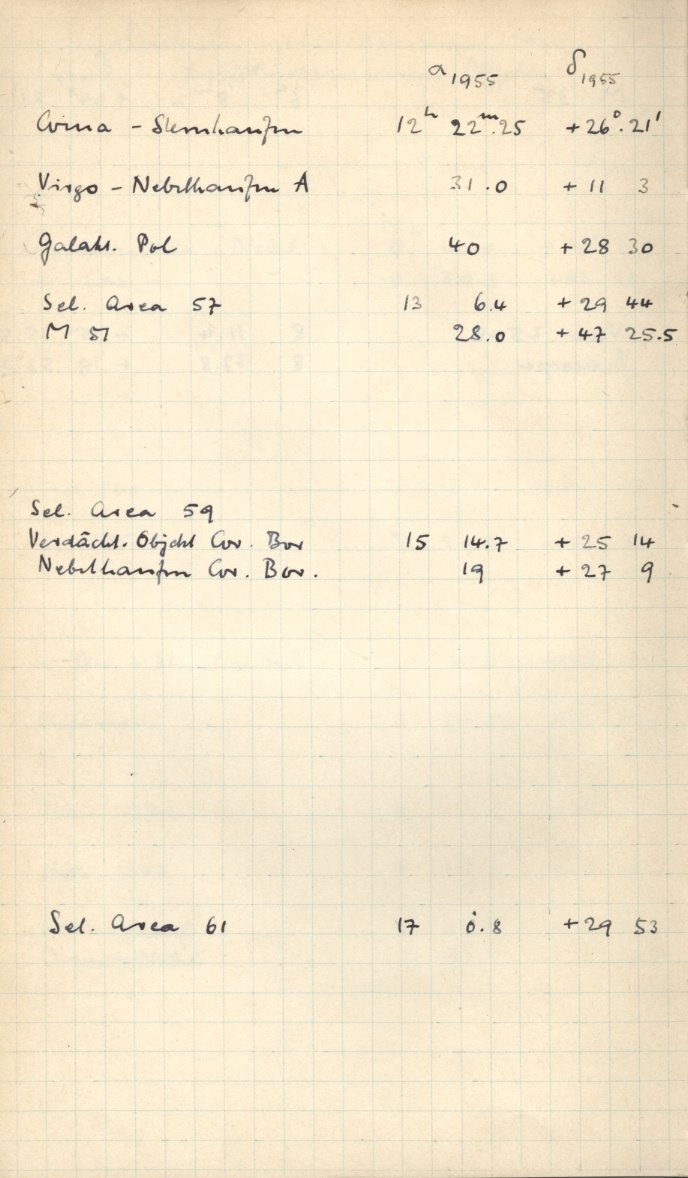 α 1955 δ 1955
Coma - Sternhaufen 12h 22m.25 +26°.21'
Virgo - Nebelhaufen A 31.0 + 11 3
Galakt. Pol 40 +28 30
Sel. Area 57 13 6.4 +29 44
M 51 28.0 + 47 25.5
Sel. Area 59
Verdächt. Objekt Cor. Bor 15 14.7 + 25 14
Nebelhaufen Cor. Bor. 19 + 27 9
Sel. Area 61 17 0.8 +29 53